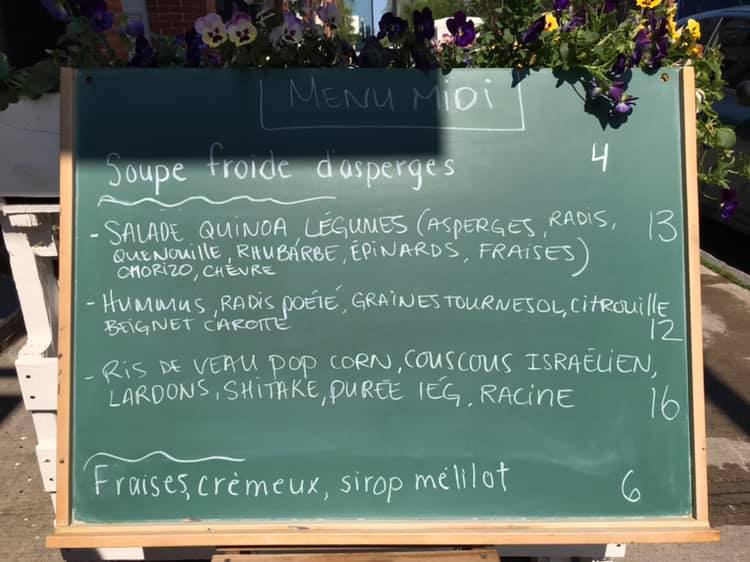 MENU MIDI
Soupe froide d'asperges 4
- SALADE QUINOA, LÉGUMES (ASPERGES, RADIS, 13
QUENOUILLE, RHUBARBE, ÉPINARDS, FRAISES)
CHORIZO, CHÈVRE
- HUMMUS, RADIS POÊLÉ, GRAINES TOURNESOL, CITROUILLE
BEIGNET CAROTTE 12
- RIS DE VEAU POP CORN, COUSCOUS ISRAÉLIEN,
LARDONS, SHITAKE, PURÉE LÉG. RACINE 16
Fraises, crémeux, sirop mélilot 6